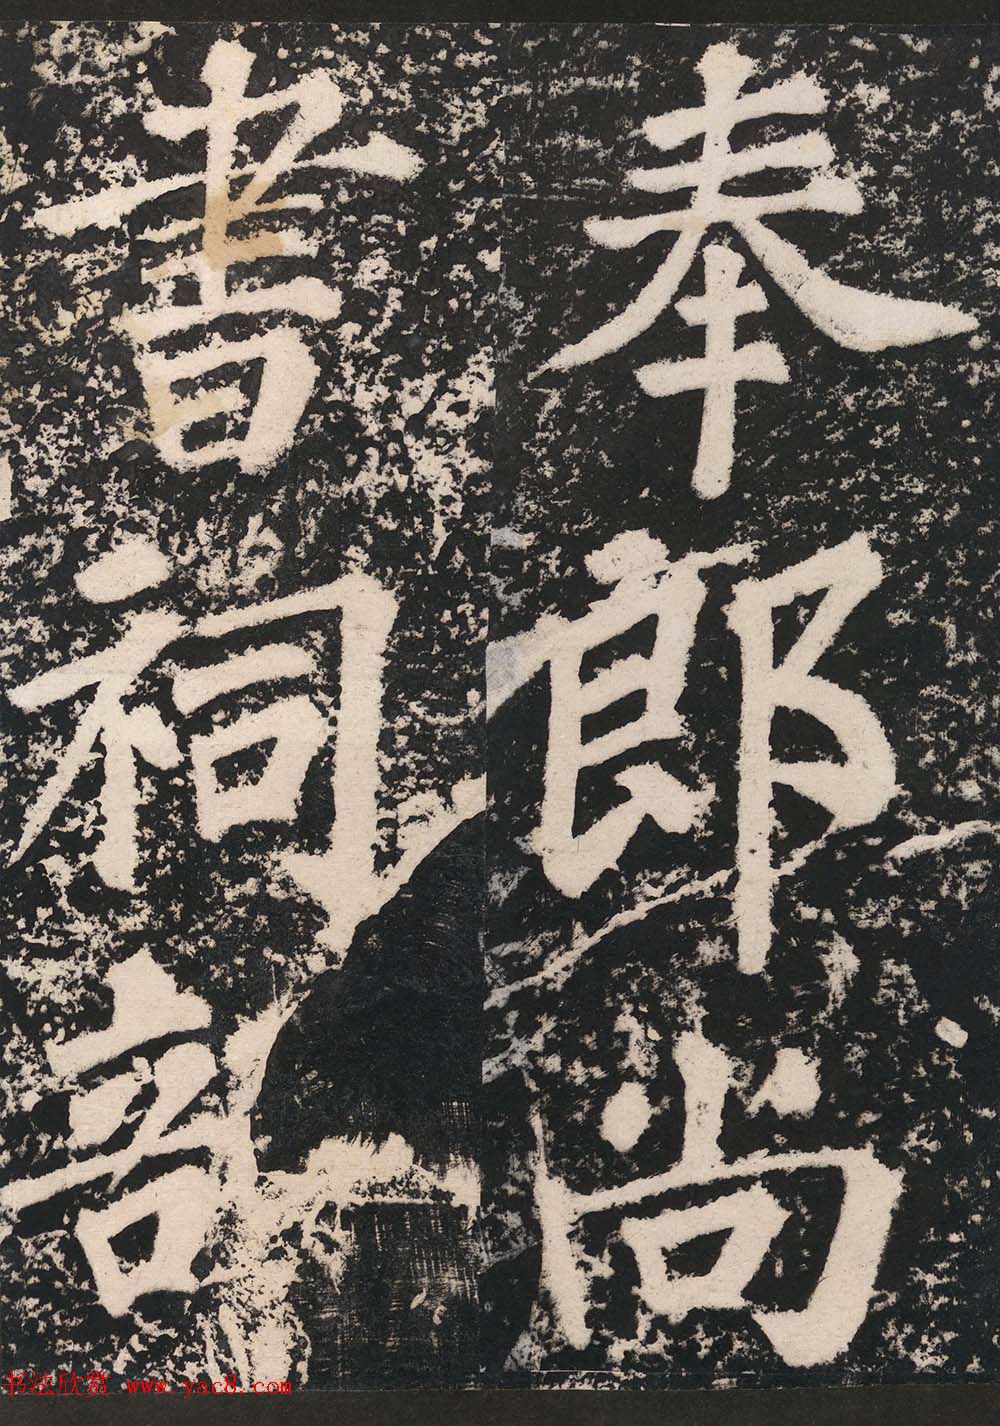 奉郎尚
書祠部
书法欣赏 www.yac8.com